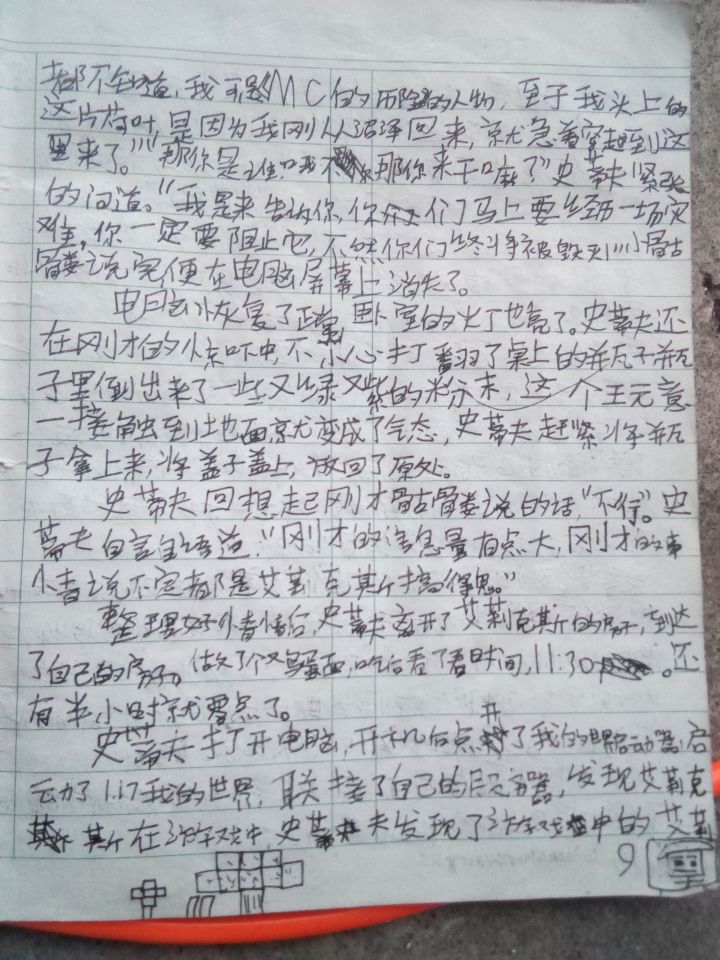 都不知道，我可是《MC的历险》的人物，至于我头上的
这片荷叶，是因为我刚从沼泽回来，就急着穿越到这
里来了。”“那你是谁？那你来干嘛？”史蒂夫紧张
的问道。“我是来告诉你，你们马上要经历一场灾
难，你一定要阻止它，不然你们终将被毁灭”小骷
髅说完，便在电脑屏幕上消失了。
电脑恢复了正常，卧室的灯也亮了。史蒂夫还
在刚才的惊吓中，不小心打翻了桌上的瓶子，瓶
子里倒出来了一些又绿又紫的粉末，这个王元意
一接触到地面就变成了气态，史蒂夫起紧将瓶
子拿上来，将盖子盖上，放回了原处。
史蒂夫回想起刚才骷髅说的话，“不行”。史
蒂夫自言自语道，“刚才的信息量有点大，刚才的事
情说不定都是艾莉克斯搞得鬼。”
整理好情绪后，史蒂夫离开了艾莉克斯的房子，到达
了自己的房子。做了个双蛋面，吃后看了看时间，11:30。还
有半小时就零点了。
史蒂夫打开电脑，开机后点开了我的启动器，启
动了1.17我的世界，联接了自己的服务器，发现艾莉克
斯在游戏中，史蒂夫发现了游戏中的艾莉
9